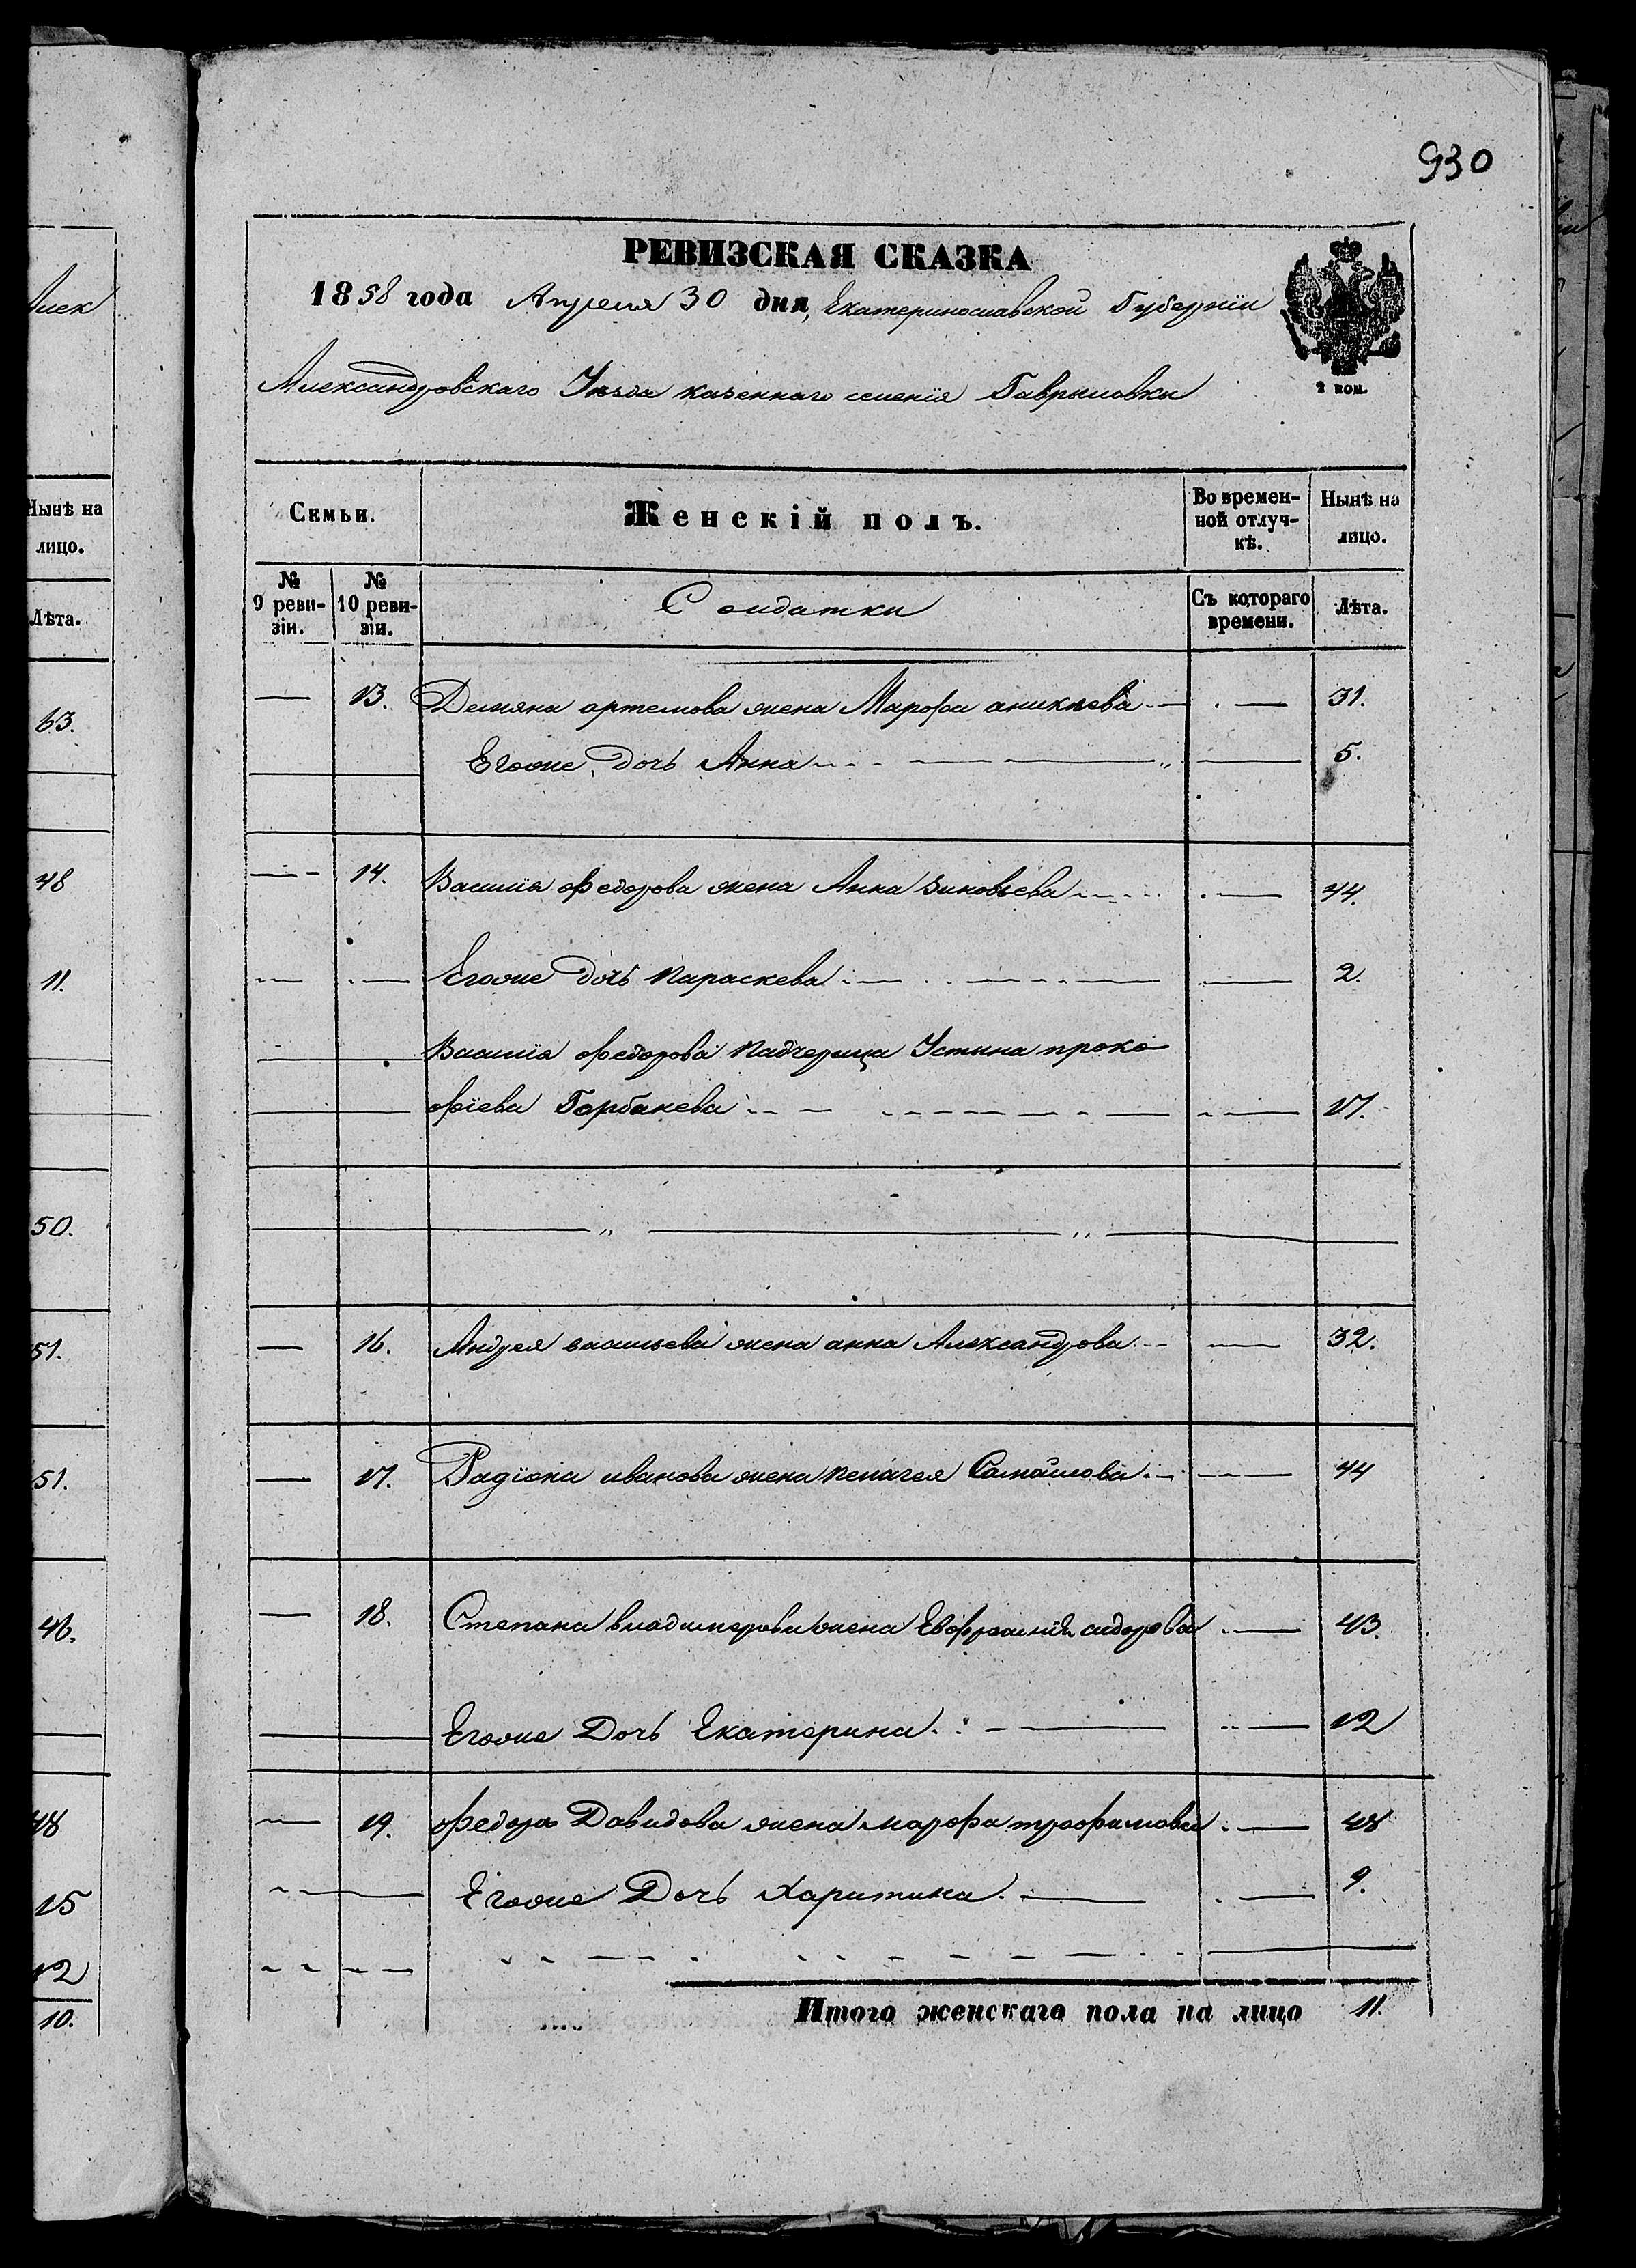 930
РЕВИЗСКАЯ СКАЗКА
1858 года Апреля 30 дня, Екатеринославской Губернїи
Александровскаго Уѣзда казеннаго селенїя Гаврыловки
2 коп.
Алек
Нынѣ на
лицо.
Лѣта.
63.
48
11.
50.
51.
51.
46.
48
15
12
10.
Семьи.
Женскій полъ.
Во времен-
ной отлуч-
кѣ.
Нынѣ на
лицо.
№
9 реви-
зіи.
№
10 реви-
зіи.
Солдатки
Съ котораго
времени.
Лѣта.
13. Демяна артемова жена Марфа аникѣева 31.
Егоже дочь Анна 5.
14. Василїя федорова жена Анна Зиновьева 44.
Егоже дочь Параскева 2.
Василїя федорова Падчерица Устина проко
фїева Горбанева 17.
16. Андрея васильева жена анна Александрова 32.
17. Радїона иванова жена Пелагея Самойлова 44
18. Степана владимерова жена Евфросинїя сидорова 43.
Егоже Дочь Екатерина 12
19. федора Давидова жена марфа трофимова 48
Егоже Дочь Харитина 9.
Итого женскаго пола на лицо 11.